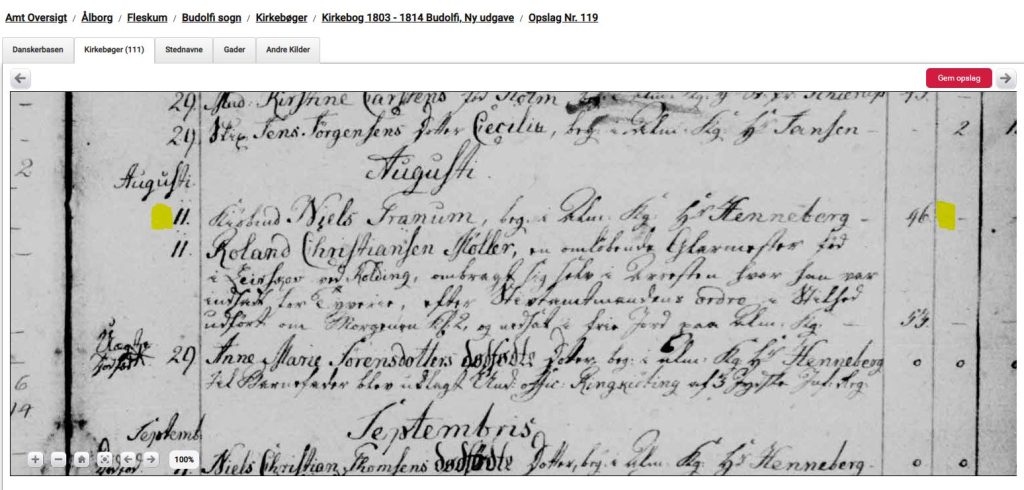 Amt Oversigt / Ålborg / Fleskum / Budolfi sogn / Kirkebøger / Kirkebog 1803 - 1814 Budolfi, Ny udgave / Opslag Nr. 119
Danskerbasen Kirkebøger (111) Stednavne Gader Andre Kilder
Gem opslag
29. Mad. Kirstine Carstens fød Holm
29. Jens Jørgensens Dotter Cecilia, beg. i Alm. Kg. Hr Jansen - - 2
Augusti.
2
Augusti.
11. Niels Franum, beg. i Alm. Kg. Hr Henneberg - 46. -
11. Roland Christiansen Møller, en omløbende Glarmester fød
i Leirskov ved Kolding, ombragt sig selv i Arresten hvor han var
indsat for Tyverie, efter Stiftamtmandens ordre i Stilhed
udført om Morgenen Kl. 2, og nedsat i frie Jord paa Alm. Kg. - 53. -
29. Anne Marie Sørensdotters dødfødte Dotter, beg. i Alm. Kg. Hr Henneberg 0 0
6
til Barnefader blev udlagt Und. offic. Ringkiøbing af 3 Jydske Inf. Reg.
14
Septembris
Septemb.
11. Niels Christian Thomsens dødfødte Dotter, beg. i Alm. Kg. Hr Henneberg - 0 0
100%